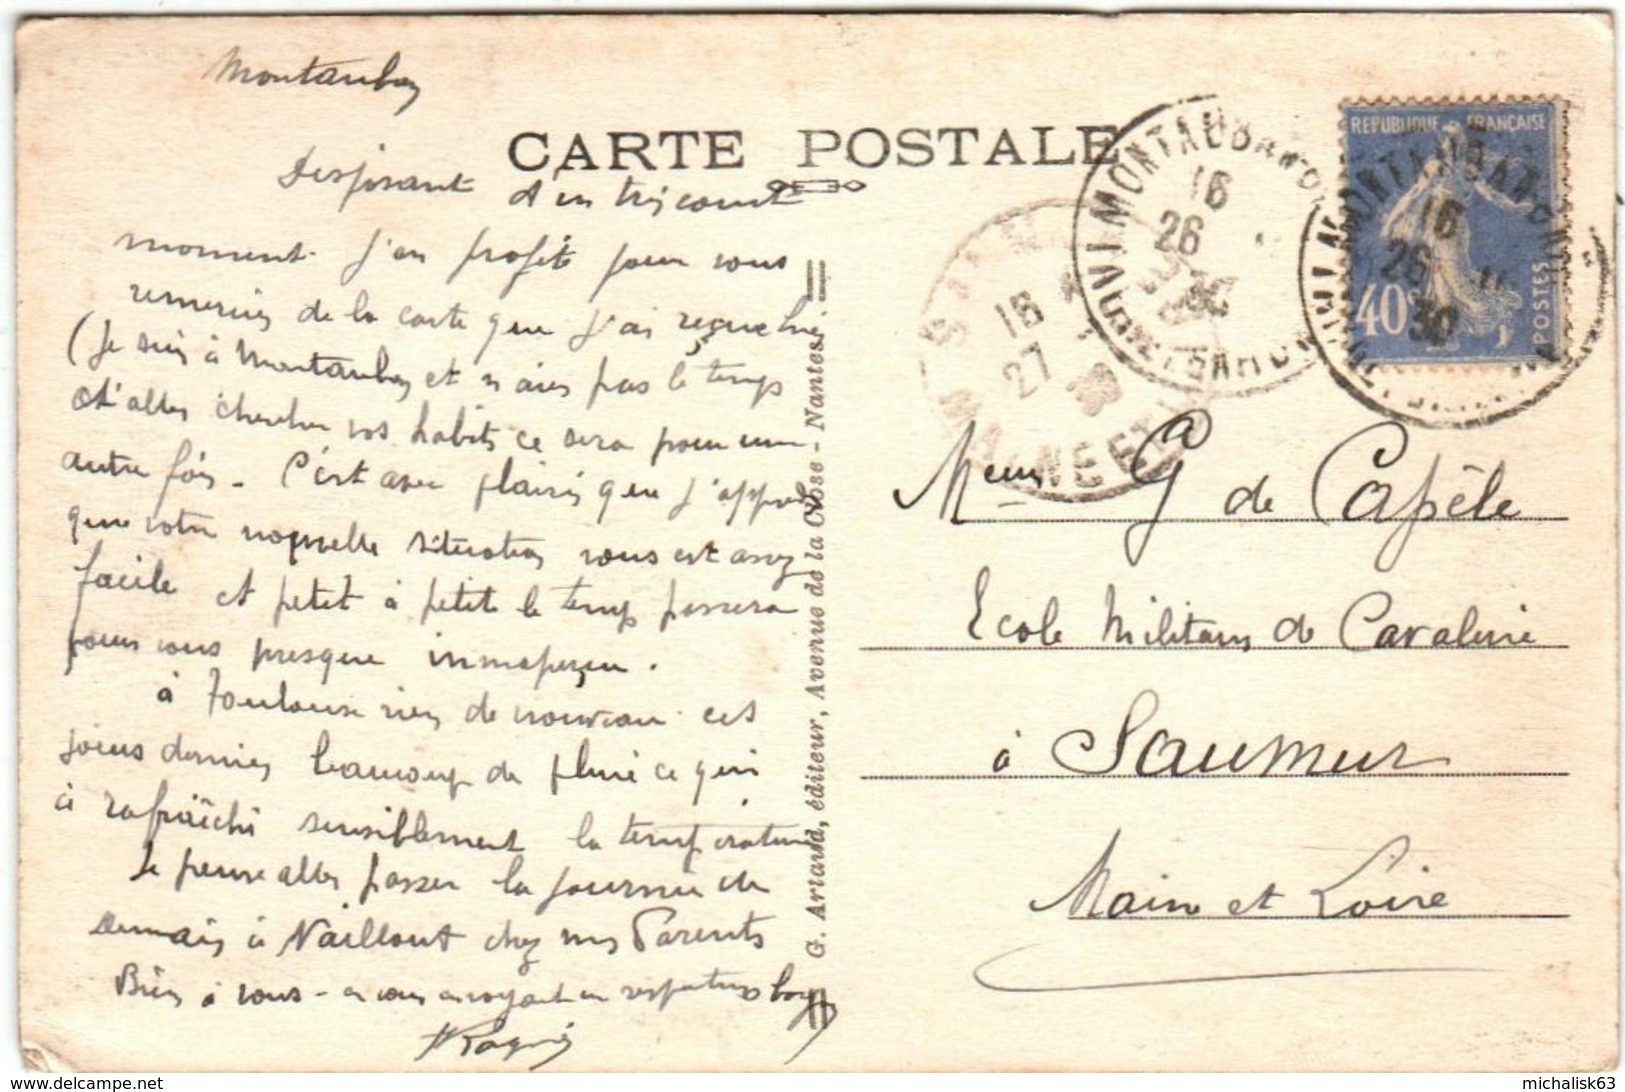 Montauban
CARTE POSTALE
Disposant d'un tres court
moment. J'en profite pour vous
remercier de la carte que j'ai reçue hier
(Je suis à Montauban et n'aies pas le temps
d'aller chercher vos habits ce sera pour une
autre fois. C'est avec plaisir que j'apprends
que votre nouvelle situation vous est assez
facile et petit à petit le temps passera
pour vous presque inaperçu.
à Toulouse rien de nouveau ces
jours derniers beaucoup de pluie ce qui
à rafraîchi sensiblement la température
Je pense aller passer la journée de
demain à Naillout chez mes Parents
Bien à vous - en vous envoyant un respectueux
G. Artaud, éditeur, Avenue de la Close - Nantes
REPUBLIQUE FRANÇAISE
40c
POSTES
MONTAUBAN
16
26
30
MONTAUBAN
16
26
30
16
27
Mr G de Capèle
Ecole Militaire de Cavalerie
à Saumur
Main et Loire
michalisk63
www.delcampe.net